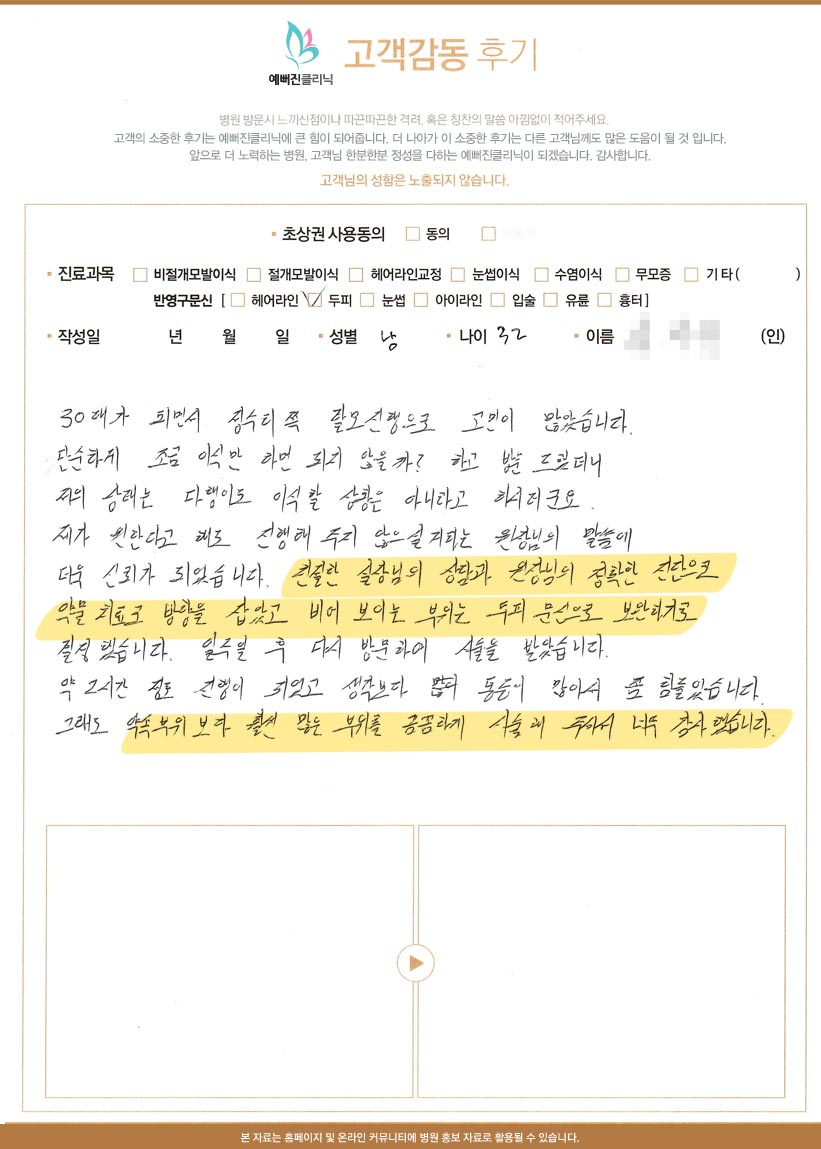 예뻐진클리닉 고객감동 후기
병원 방문시 느끼신점이나 따끈따끈한 격려, 혹은 칭찬의 말씀 아낌없이 적어주세요.
고객의 소중한 후기는 예뻐진클리닉에 큰 힘이 되어줍니다. 더 나아가 이 소중한 후기는 다른 고객님께도 많은 도움이 될 것 입니다.
앞으로 더 노력하는 병원, 고객님 한분한분 정성을 다하는 예뻐진클리닉이 되겠습니다. 감사합니다.
고객님의 성함은 노출되지 않습니다.
초상권 사용동의 동의
진료과목 비절개모발이식 절개모발이식 헤어라인교정 눈썹이식 수염이식 무모증 기타( )
반영구문신 [ 헤어라인 두피 눈썹 아이라인 입술 유륜 흉터 ]
작성일 년 월 일 성별 남 나이 32 이름 (인)
30대가 되면서 정수리쪽 탈모진행으로 고민이 많았습니다.
단순하게 조금 이식만 하면 되지 않을까? 하고 방문 드렸더니
저의 상태는 다행이도 이식할 상황은 아니라고 하시더군요.
제가 원한다고 해도 진행해 주지 않으실거라는 원장님의 말씀에
더욱 신뢰가 되었습니다. 친절한 실장님의 상담과 원장님의 정확한 진단으로
약물 치료로 방향을 잡았고 비어 보이는 부위는 두피 문신으로 보완하기로
결정 했습니다. 일주일 후 다시 방문하여 시술을 받았습니다.
약 2시간 정도 진행이 되었고 생각보다 통증이 많아서 좀 힘들었습니다.
그래도 약속부위 보다 훨씬 많은 부위를 꼼꼼하게 시술해 주셔서 너무 감사했습니다.
본 자료는 홈페이지 및 온라인 커뮤니티에 병원 홍보 자료로 활용될 수 있습니다.